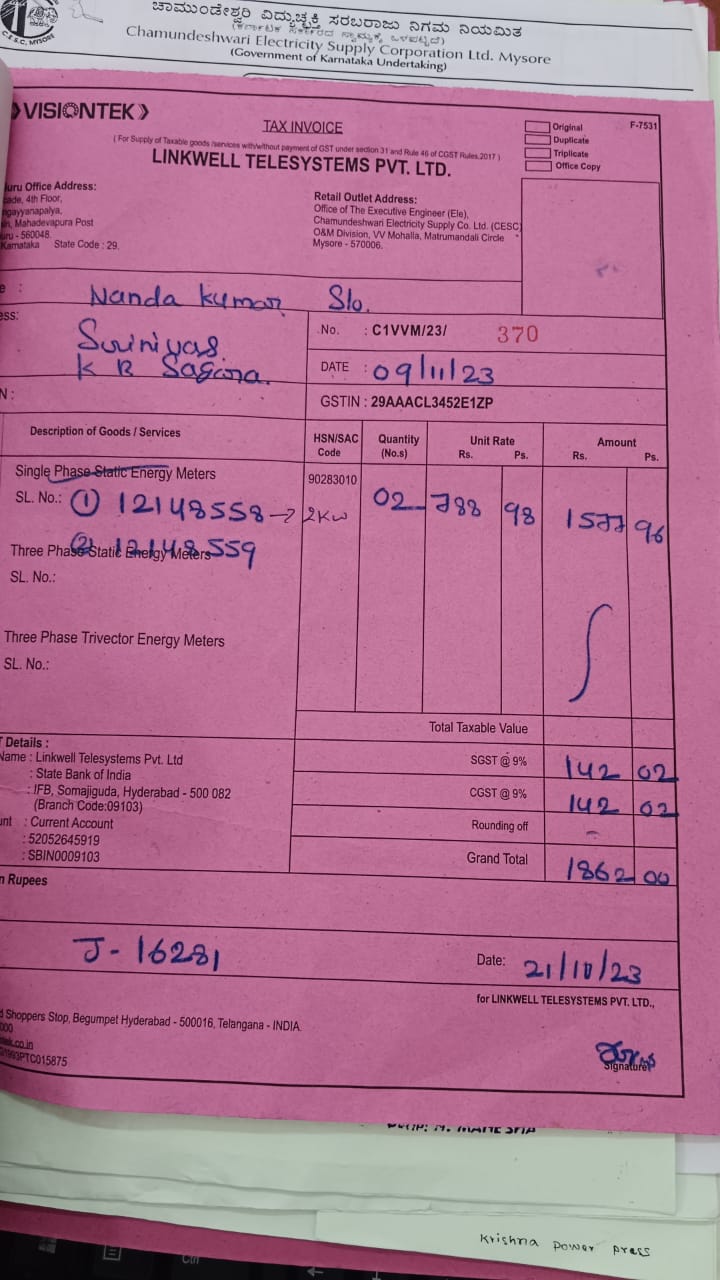 ಚಾಮುಂಡೇಶ್ವರಿ ವಿದ್ಯುಚ್ಛಕ್ತಿ ಸರಬರಾಜು ನಿಗಮ ನಿಯಮಿತ
(ಕರ್ನಾಟಕ ಸರ್ಕಾರದ ಸ್ವಾಮ್ಯಕ್ಕೆ ಒಳಪಟ್ಟಿದೆ)
Chamundeshwari Electricity Supply Corporation Ltd. Mysore
(Government of Karnataka Undertaking)
C.E.S.C. MYSORE
VISIONTEK
TAX INVOICE
Original
F-7531
Duplicate
Triplicate
Office Copy
( For Supply of Taxable goods /services with/without payment of GST under section 31 and Rule 46 of CGST Rules,2017 )
LINKWELL TELESYSTEMS PVT. LTD.
uru Office Address:
cade, 4th Floor,
ngayyanapalya,
in, Mahadevapura Post
uru - 560048.
Karnataka State Code : 29.
Retail Outlet Address:
Office of The Executive Engineer (Ele),
Chamundeshwari Electricity Supply Co. Ltd. (CESC)
O&M Division, VV Mohalla, Matrumandali Circle
Mysore - 570006.
e : Nanda Kumar S/o.
ess: Sriniyas
K R Sagara.
No. : C1VVM/23/ 370
DATE : 09/11/23
N :
GSTIN : 29AAACL3452E1ZP
Description of Goods / Services HSN/SAC Code Quantity (No.s) Unit Rate Rs. Ps. Amount Rs. Ps.
Single Phase Static Energy Meters 90283010
SL. No.: ① 12148558 → 2Kw 02 788 98 1577 96
Three Phase Static Energy Meters
② 12148559
SL. No.:
Three Phase Trivector Energy Meters
SL. No.:
Total Taxable Value
Details :
Name : Linkwell Telesystems Pvt. Ltd
: State Bank of India
: IFB, Somajiguda, Hyderabad - 500 082
(Branch Code:09103)
unt : Current Account
: 52052645919
: SBIN0009103
SGST @ 9% 142 02
CGST @ 9% 142 02
Rounding off -
Grand Total 1862 00
n Rupees
J - 16281
Date: 21/10/23
for LINKWELL TELESYSTEMS PVT. LTD.,
d Shoppers Stop, Begumpet Hyderabad - 500016, Telangana - INDIA.
000
tek.co.in
1993PTC015875
Signature
Krishna power press
Ctrl